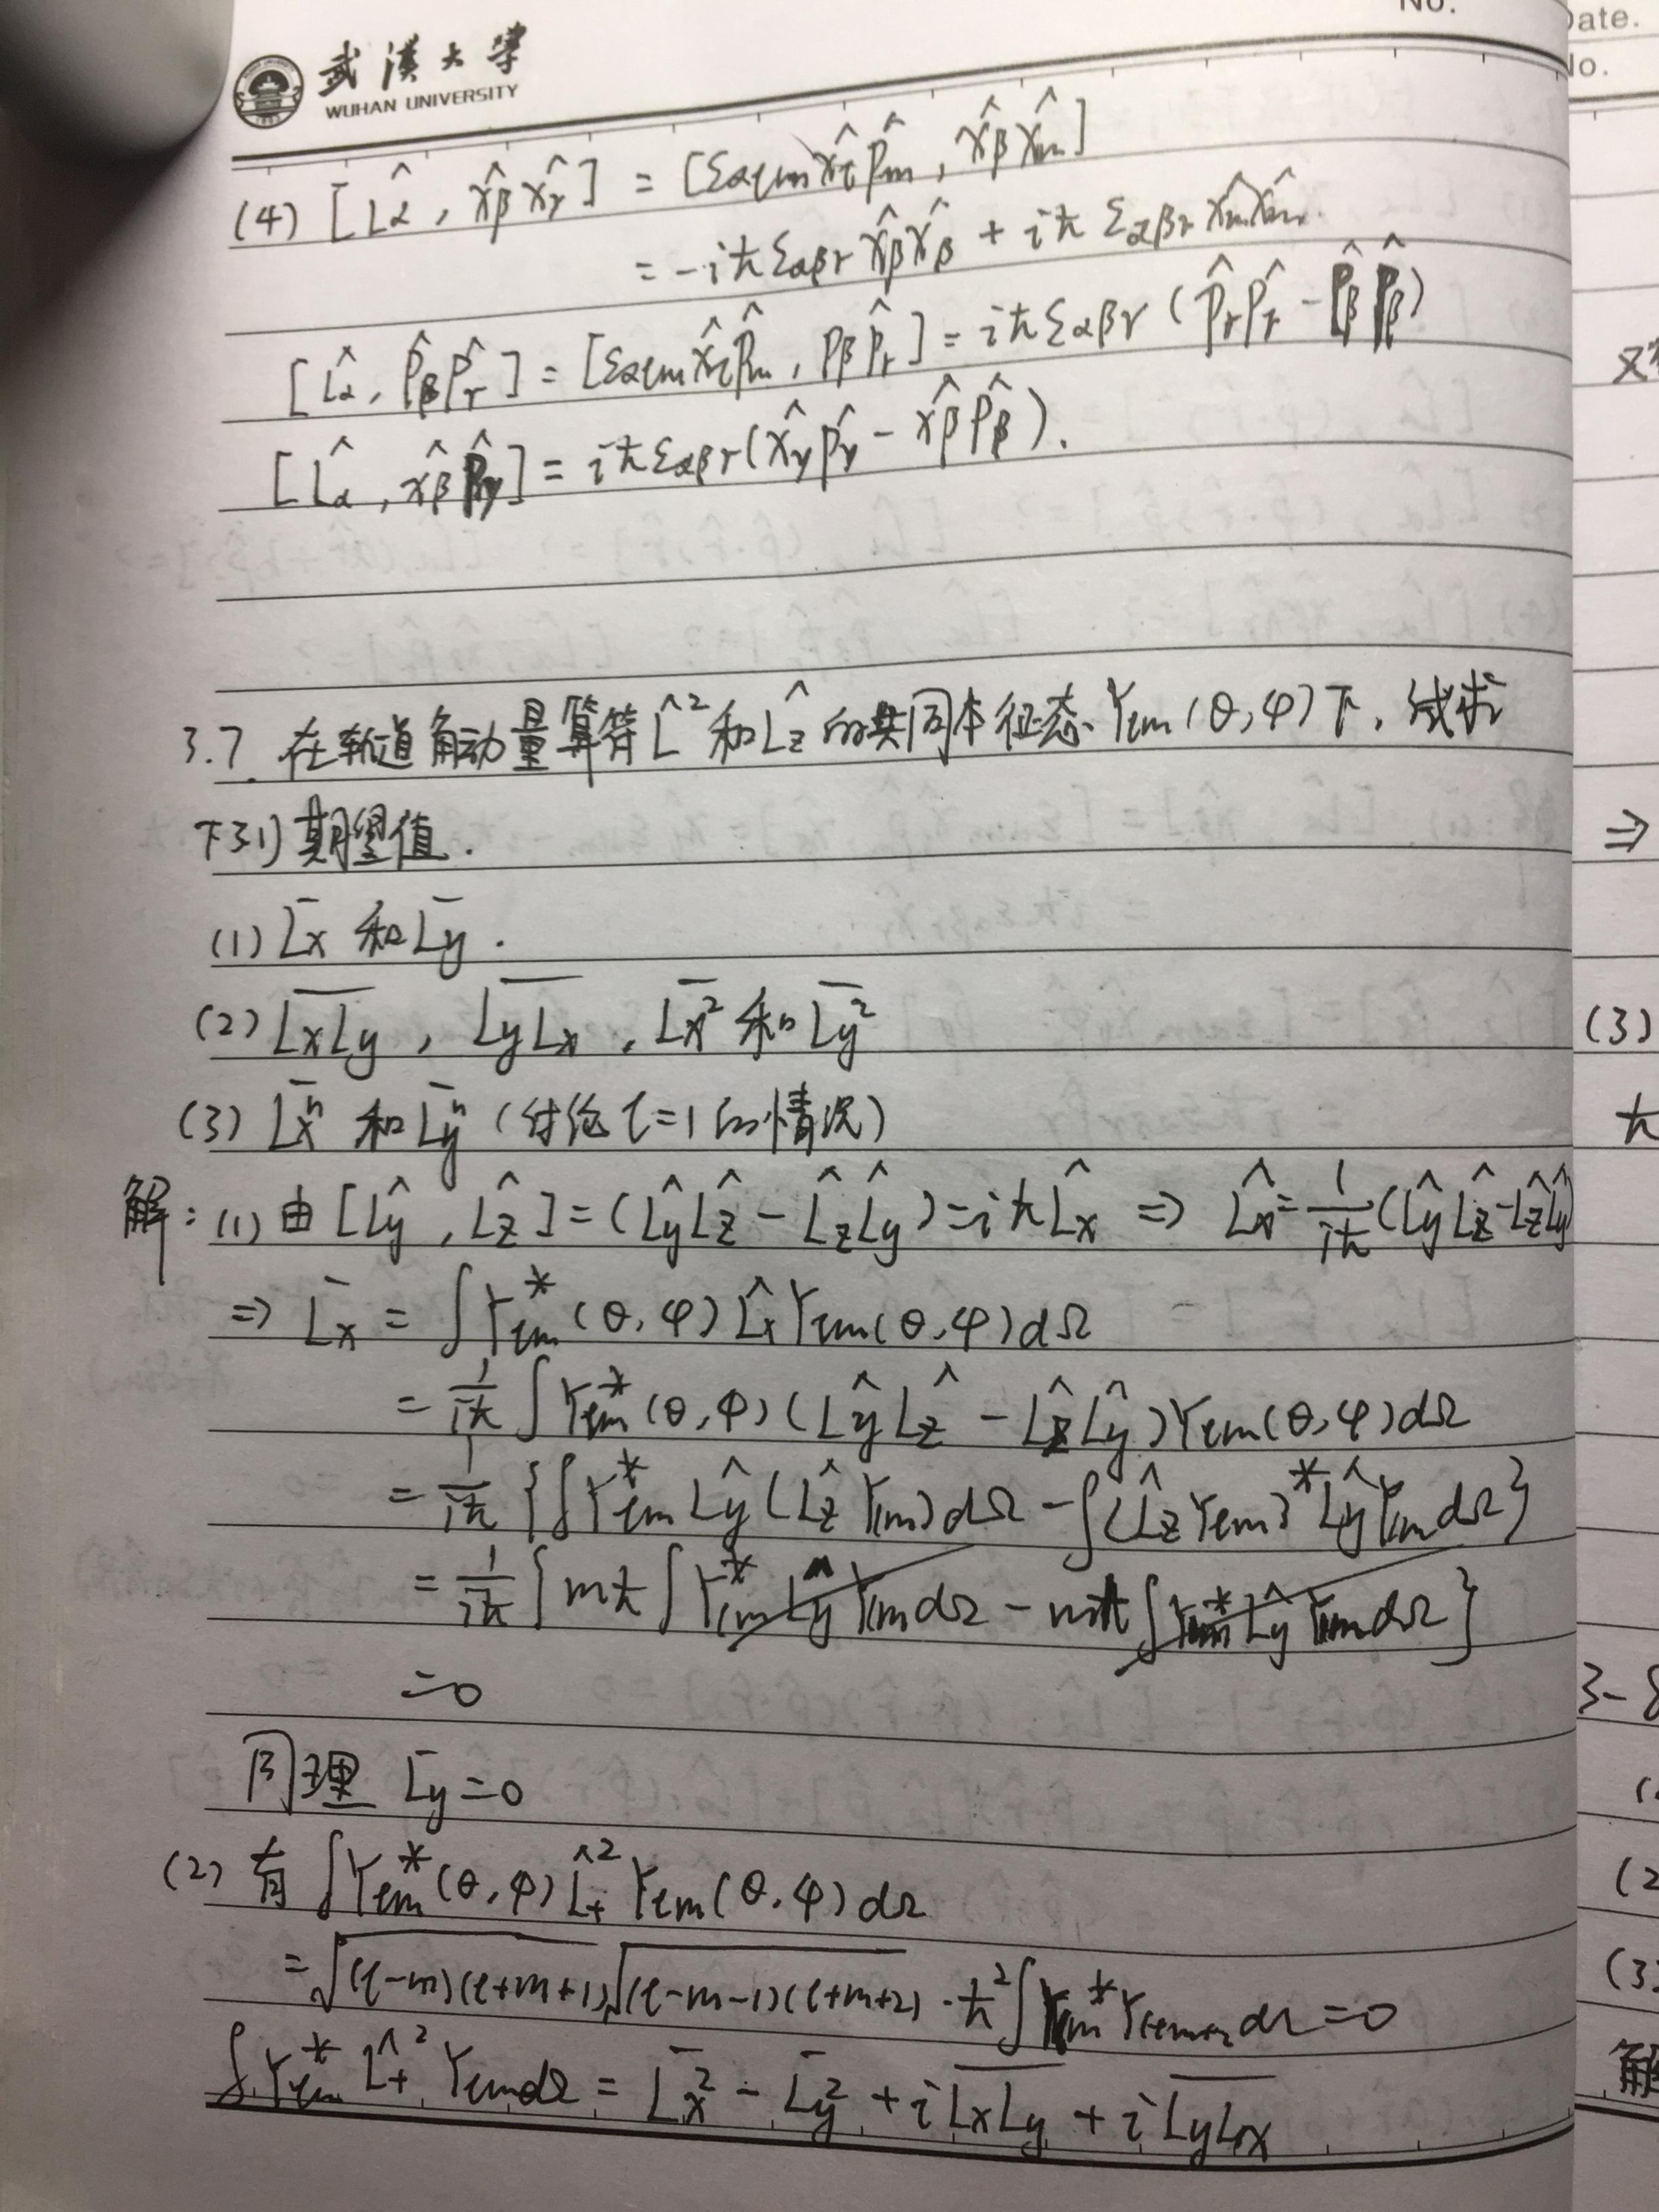 No.
Date.
No.
武漢大學
WUHAN UNIVERSITY
(4) [L̂α, x̂βx̂γ] = [εαlm x̂l p̂m, x̂βx̂m]
= -iħ εαβγ x̂βx̂β + iħ εαβγ x̂m x̂m.
[L̂α, p̂βp̂γ] = [εαlm x̂l p̂m, pβ p̂γ] = iħ εαβγ (p̂γp̂γ - p̂β p̂β)
[L̂α, x̂β p̂γ] = iħ εαβγ (x̂γp̂γ - x̂βp̂β).
3.7. 在轨道角动量算符 L̂² 和 L̂z 的共同本征态 Ylm(θ,φ)下, 试求
下列期望值.
(1) L̄x 和 L̄y.
(2) \overline{LxLy}, \overline{LyLx}, \overline{Lx²} 和 \overline{Ly²}
(3) \overline{Lx^n} 和 \overline{Ly^n} (讨论 l=1 的情况)
解: (1) 由 [L̂y, L̂z] = (L̂yL̂z - L̂zL̂y) = iħL̂x ⇒ L̂x = 1/iħ (L̂yL̂z - L̂zL̂y)
⇒ L̄x = ∫Ylm*(θ,φ) L̂x Ylm(θ,φ)dΩ
= 1/iħ ∫Ylm*(θ,φ)(L̂yL̂z - L̂zL̂y)Ylm(θ,φ)dΩ
= 1/iħ {∫Ylm* L̂y(L̂z Ylm)dΩ - ∫(L̂z Ylm)* L̂y Ylm dΩ}
= 1/iħ {mħ∫Ylm* L̂y Ylm dΩ - mħ∫Ylm* L̂y Ylm dΩ}
=0
同理 L̄y=0
(2) 有 ∫Ylm*(θ,φ) L̂+² Ylm(θ,φ)dΩ
= √(l-m)(l+m+1) √(l-m-1)(l+m+2) · ħ²∫Ylm* Ylm+2 dΩ = 0
∫Ylm* L̂+² Ylm dΩ = \overline{Lx²} - \overline{Ly²} + i\overline{LxLy} + i\overline{LyLx}
⇒
(3)
ħ
3-8
(2
(3)
解